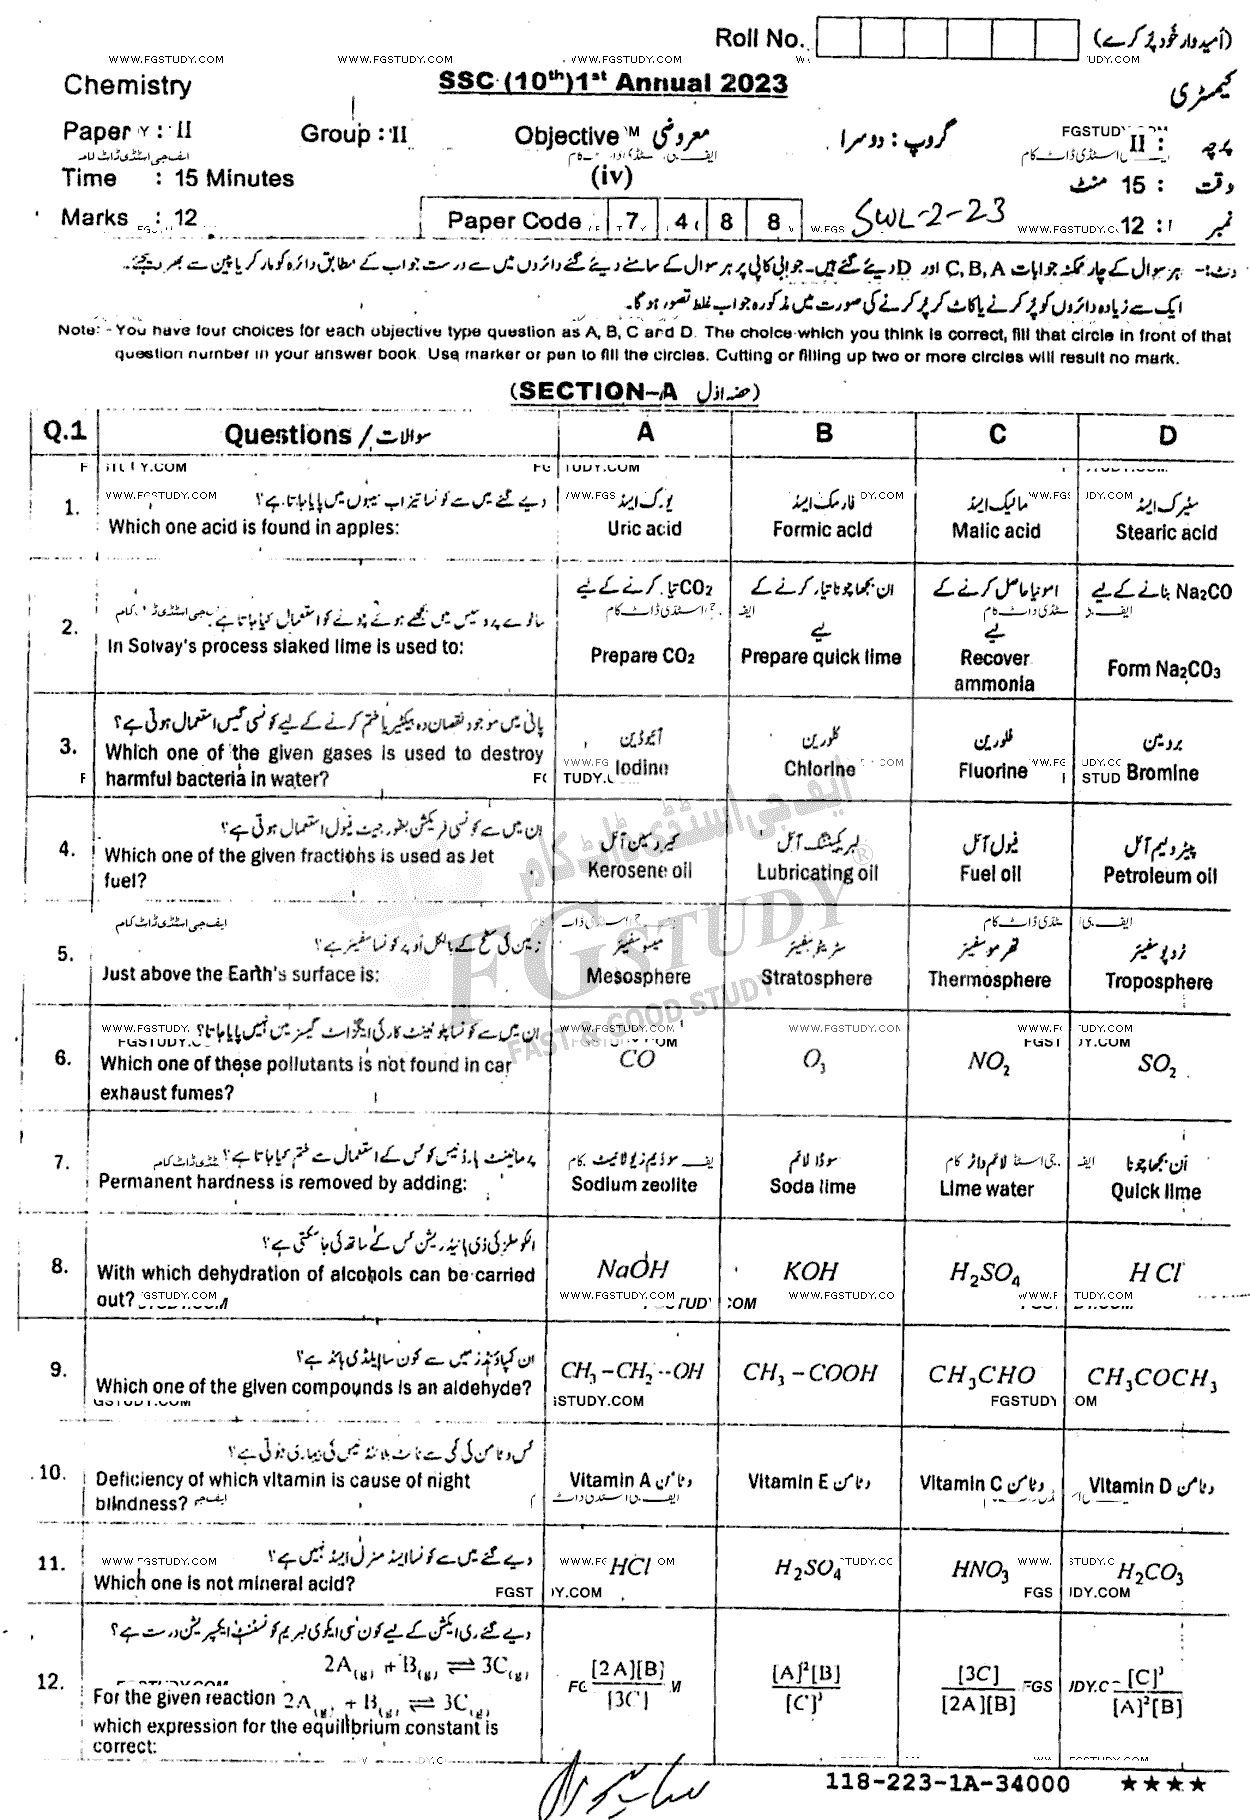 Roll No. (اُمیدوار خود پُر کرے)
WWW.FGSTUDY.COM WWW.FGSTUDY.COM WWW.FGSTUDY.COM WWW.FGSTUDY.COM
Chemistry SSC (10th) 1st Annual 2023 کیمسٹری
Paper : II Group : II Objective معروضی گروپ : دوسرا پرچہ : II
Time : 15 Minutes (iv) وقت : 15 منٹ
Marks : 12 Paper Code 7 4 8 8 SWL-2-23 نمبر : 12
نوٹ:- ہر سوال کے چار ممکنہ جوابات A, B, C اور D دیئے گئے ہیں۔ جوابی کاپی پر ہر سوال کے سامنے دیئے گئے دائروں میں سے درست جواب کے مطابق دائرہ کو مارکر یا پین سے بھر دیجئے۔
ایک سے زیادہ دائروں کو پُر کرنے یا کاٹ کر پُر کرنے کی صورت میں مذکورہ جواب غلط تصور ہو گا۔
Note: - You have four choices for each objective type question as A, B, C and D. The choice which you think is correct, fill that circle in front of that
question number in your answer book. Use marker or pen to fill the circles. Cutting or filling up two or more circles will result no mark.
(SECTION-A حصہ اوّل)
Q.1 Questions / سوالات A B C D
1. دیے گئے میں سے کونسا تیزاب سیبوں میں پایا جاتا ہے؟ یورک ایسڈ فارمک ایسڈ مالیک ایسڈ سٹیرک ایسڈ
Which one acid is found in apples: Uric acid Formic acid Malic acid Stearic acid
2. سالوے پروسیس میں بجھے ہوئے چونے کو استعمال کیا جاتا ہے: CO2 تیار کرنے کے لیے ان بجھا چونا تیار کرنے کے لیے امونیا حاصل کرنے کے لیے Na2CO بنانے کے لیے
In Solvay's process slaked lime is used to: Prepare CO2 Prepare quick lime Recover ammonia Form Na2CO3
3. پانی میں موجود نقصان دہ بیکٹیریا ختم کرنے کے لیے کونسی گیس استعمال ہوتی ہے؟ آئیوڈین کلورین فلورین برومین
Which one of the given gases is used to destroy
harmful bacteria in water? Iodine Chlorine Fluorine Bromine
4. ان میں سے کونسی فریکشن بطور جیٹ فیول استعمال ہوتی ہے؟ کیروسین آئل لبریکیٹنگ آئل فیول آئل پیٹرولیم آئل
Which one of the given fractions is used as Jet
fuel? Kerosene oil Lubricating oil Fuel oil Petroleum oil
5. زمین کی سطح کے بالکل اُوپر کونسا سفیئر ہے؟ میسوسفیئر سٹریٹوسفیئر تھرموسفیئر ٹروپوسفیئر
Just above the Earth's surface is: Mesosphere Stratosphere Thermosphere Troposphere
6. ان میں سے کونسا پلوٹینٹ کار کی ایگزاسٹ گیسز میں نہیں پایا جاتا؟
Which one of these pollutants is not found in car
exhaust fumes? CO O3 NO2 SO2
7. پرماننٹ ہارڈنیس کو کس کے استعمال سے ختم کیا جاتا ہے؟ سوڈیم زیولائیٹ سوڈا لائم لائم واٹر اَن بجھا چونا
Permanent hardness is removed by adding: Sodium zeolite Soda lime Lime water Quick lime
8. الکوحلز کی ڈی ہائیڈریشن کس کے ساتھ کی جا سکتی ہے؟
With which dehydration of alcohols can be carried
out? NaOH KOH H2SO4 HCl
9. ان کمپاؤنڈز میں سے کون سا ایلڈی ہائڈ ہے؟
Which one of the given compounds is an aldehyde? CH3-CH2--OH CH3-COOH CH3CHO CH3COCH3
10. کس وٹامن کی کمی سے نائٹ بلائنڈنیس کی بیماری ہوتی ہے؟
Deficiency of which vitamin is cause of night
blindness? Vitamin A وٹامن Vitamin E وٹامن Vitamin C وٹامن Vitamin D وٹامن
11. دیے گئے میں سے کونسا ایسڈ منرل ایسڈ نہیں ہے؟
Which one is not mineral acid? HCl H2SO4 HNO3 H2CO3
12. دیے گئے ری ایکشن کے لیے کون سی ایکوی لبریم کونسٹنٹ ایکسپریشن درست ہے؟
2A(g) + B(g) ⇌ 3C(g)
For the given reaction 2A(g) + B(g) ⇌ 3C(g)
which expression for the equilibrium constant is
correct: [2A][B]/[3C] [A]²[B]/[C]³ [3C]/[2A][B] [C]³/[A]²[B]
ایف جی اسٹڈی ڈاٹ کام
FGSTUDY®
FAST & GOOD STUDY
118-223-1A-34000 ★★★★